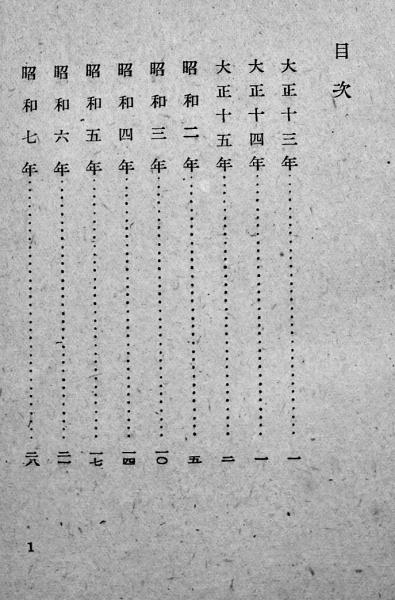 目次
大正十三年……一
大正十四年……一
大正十五年……二
昭和二年……五
昭和三年……一〇
昭和四年……一四
昭和五年……一七
昭和六年……二一
昭和七年……二八
1